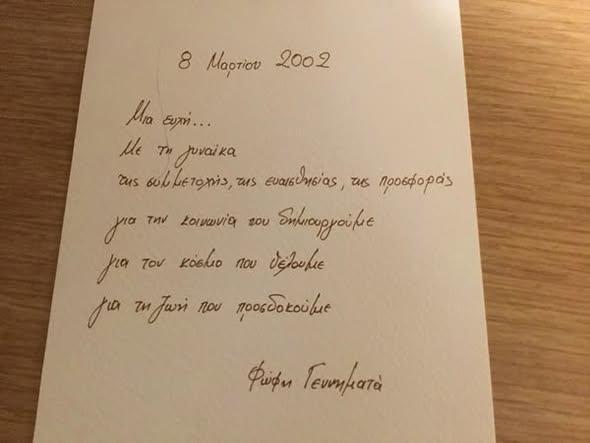 8 Μαρτίου 2002
Μια ευχή...
Με τη γυναίκα
της συμμετοχής, της ευαισθησίας, της προσφοράς
για την κοινωνία που δημιουργούμε
για τον κόσμο που θέλουμε
για τη ζωή που προσδοκούμε
Φώφη Γεννηματά